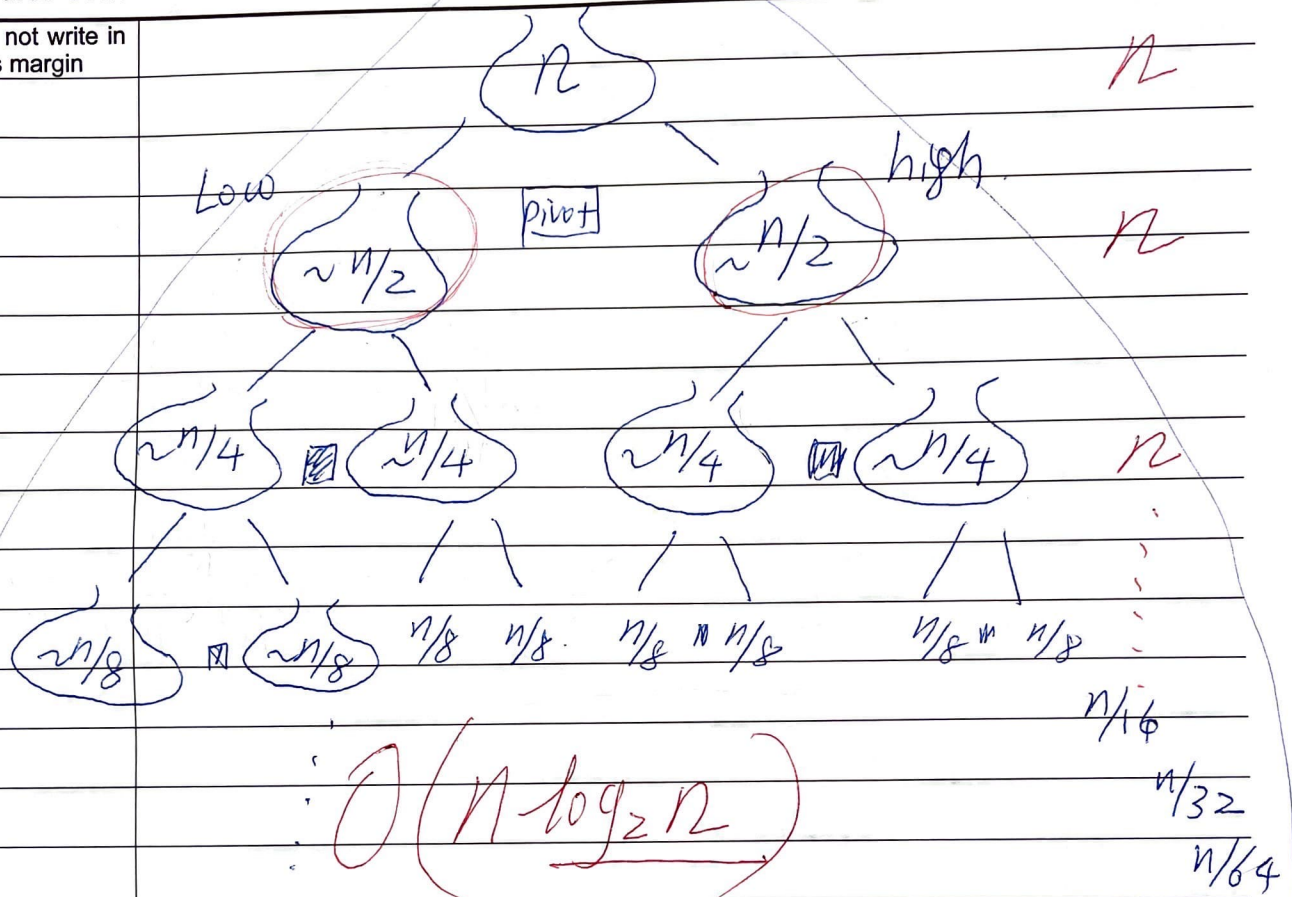 not write in
margin
n n
Low pivot high
~n/2 ~n/2 n
~n/4 ~n/4 ~n/4 ~n/4 n
~n/8 ~n/8 n/8 n/8 n/8 n/8 n/8 n/8
n/16
n/32
n/64
O(n log₂ n)